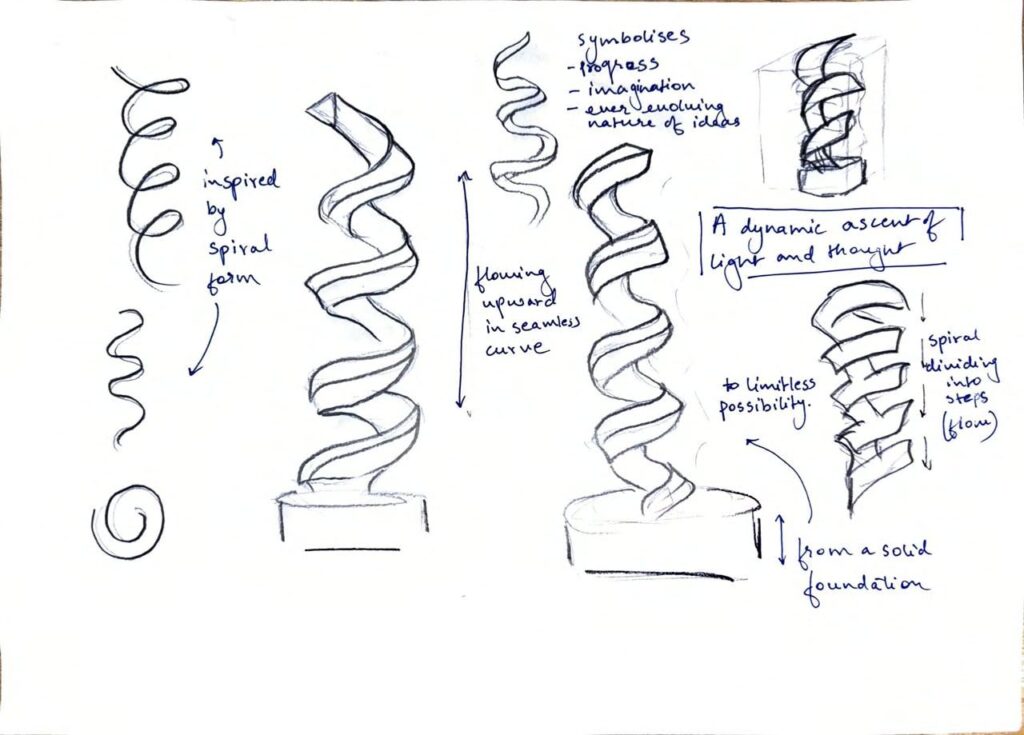 inspired
by
spiral
form
flowing
upward
in seamless
curve
symbolises
- progress
- imagination
- ever evolving
nature of ideas
A dynamic ascent of
light and thought
spiral
dividing
into
steps
(flow)
to limitless
possibility.
from a solid
foundation